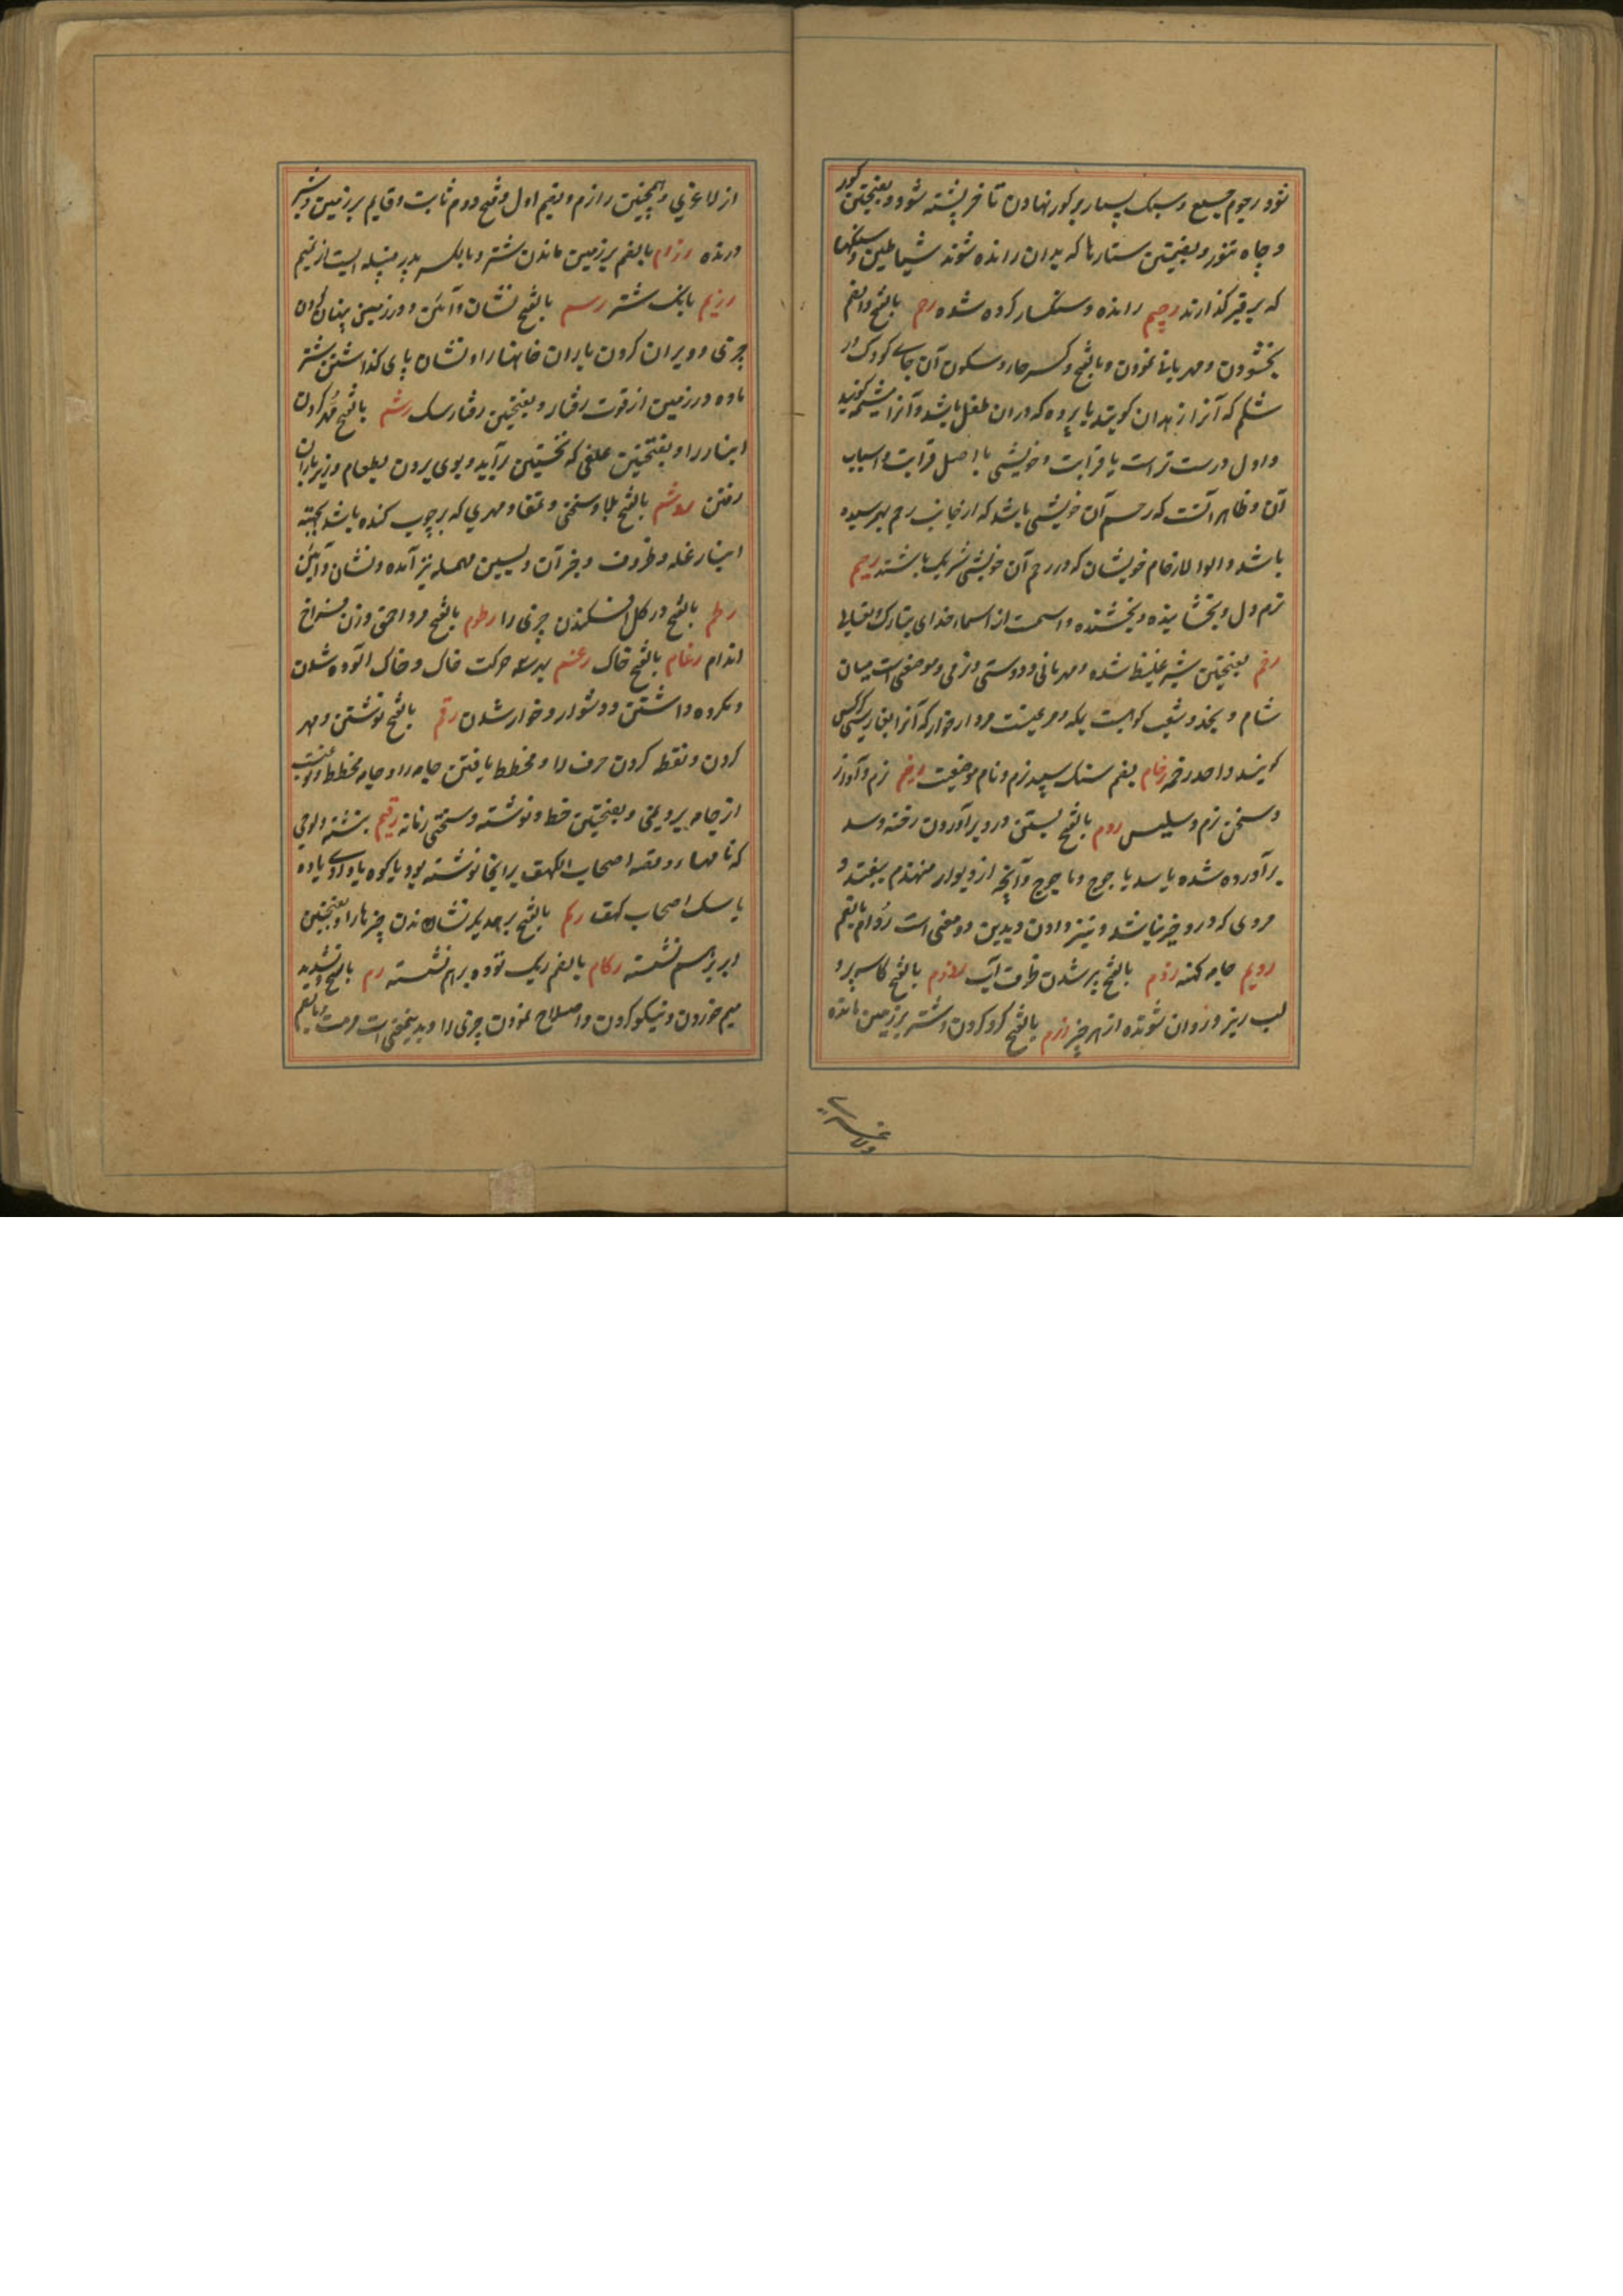 شود رجوم جمع و سنک بسیار بر کور نهادن تا خر پشته شود و بفتحتین کور
و چاه تنور و بفتحتین ستارها که بدان رانده شوند شیاطین و سنکها
که بر قبر کذارند رجیم رانده و سنکسار کرده شده رحم بالفتح و الضم
بخشودن و مهربانی نمودن و بالفتح و کسر حا و سکون آن جای کودک در
شکم که آنرا زهدان کویند یا پرده که دران طفل باشد و آنرا مشیمه کویند
و اول درست تر است یا قرابت و خویشی یا اصل قرابت و اسباب
آن و ظاهر آنست که رحم آن خویشی باشد که از جانب رحم بهم رسیده
باشد و الوا لارحام خویشان که در رحم آن خویشی شریک باشند رحیم
نرم دل و بخشاینده و بخشنده و اسمست از اسماء خدای تبارک و تعالی
رخم بفتحتین شیر غلیظ شده و مهربانی و دوستی و نرمی و موضعی است میان
شام و نجد و شعب کوهیست بمکه و مرغیست مردار خوار که آنرا بفارسی کرکس
کویند واحد رخمه رخام بضم سنک سپید نرم و نام موضعیست رخیم نرم و آواز
و سخن نرم و سلیس ردم بالفتح بستن در و برآوردن رخنه و سد
برآورده شده یا سد یاجوج و ماجوج و آنچه از دیوار منهدم بیفتد و
مردی که درو خیر نباشد و تیز دادن و بدین دو معنی است رُدام بالضم
ردیم جامه کهنه رذم بالفتح پر شدن ظرف آب رذوم بالفتح کاسه پر و
لب ریز و روان شونده از هر چیز رزم بالفتح کرد کردن و شتر بر زمین مانده
از لاغری و همچنین رازم و بضم اول و فتح دوم ثابت و قایم بر زمین و شیر
درنده رزام بالضم بر زمین ماندن شتر و بالکسر پدر قبیله ایست از تمیم
رزیم بانک شتر رسم بالفتح نشان و آئین و در زمین پنهان کردن
چیزی و ویران کردن باران خانها را و نشان پای کذاشتن شتر
ماده در زمین از قوت رفتار و بفتحتین رفتار سک رشم بالفتح مُهر کردن
انبار را و بفتحتین علفی که نخستین برآید و بوی بردن بطعام و زیر باران
رفتن روشم بالفتح بلا و سختی و تمغا و مهری که بر چوب کنده باشد بجهته
انبار غله و ظروف و جز آن و بسین مهمله نیز آمده و نشان و آئین
رطم بالفتح در کل افکندن چیزی را رطوم بالفتح مرد احمق و زن فراخ
اندام رغام بالفتح خاک رغم بهر سه حرکت خاک و خاک آلوده شدن
و مکروه داشتن و دشوار و خوار شدن رقم بالفتح نوشتن و مهر
کردن و نقطه کردن حرف را و مخطط بافتن جامه را و جامه مخطط و نوعیست
از جامه برد یمنی و بفتحتین خط و نوشته و سختی زمانه رقیم نبشته و لوحی
که نامها و قصه اصحاب الکهف برانجا نوشته بود یا کوه یا وادی یا ده
یا سک اصحاب کهف رکم بالفتح بر همدیکر نشاندن چیزها را و بفتحتین
ابر بر هم نشسته رکام بالضم ریک توده بر هم نشسته رم بالفتح و تشدید
میم خوردن و نیکو کردن و اصلاح نمودن چیزی را و بدین معنی است مرمت و بالضم